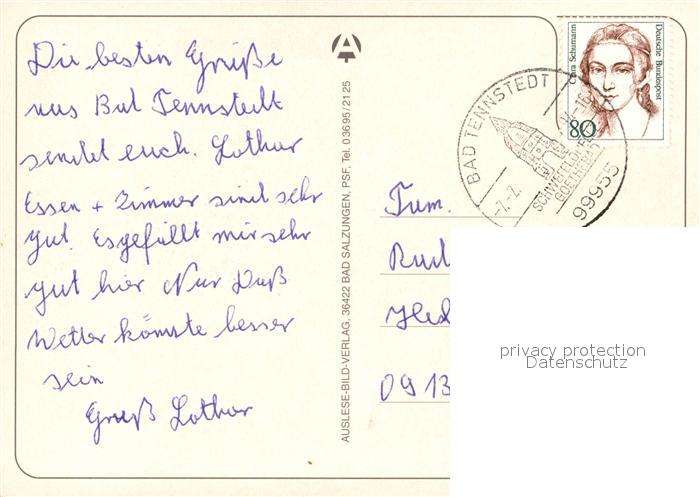 Die besten Grüße
aus Bad Tennstedt
sendet euch. Lothar
Essen + Zimmer sind sehr
gut. Es gefällt mir sehr
gut hier Nur Daß
Wetter könnte besser
sein
Gruß Lothar
AUSLESE-BILD-VERLAG, 36422 BAD SALZUNGEN, PSF, Tel. 03695/2125
Clara Schumann
Deutsche Bundespost
80
BAD TENNSTEDT
99955
Fam.
Rud
Hed
0913
privacy protection
Datenschutz